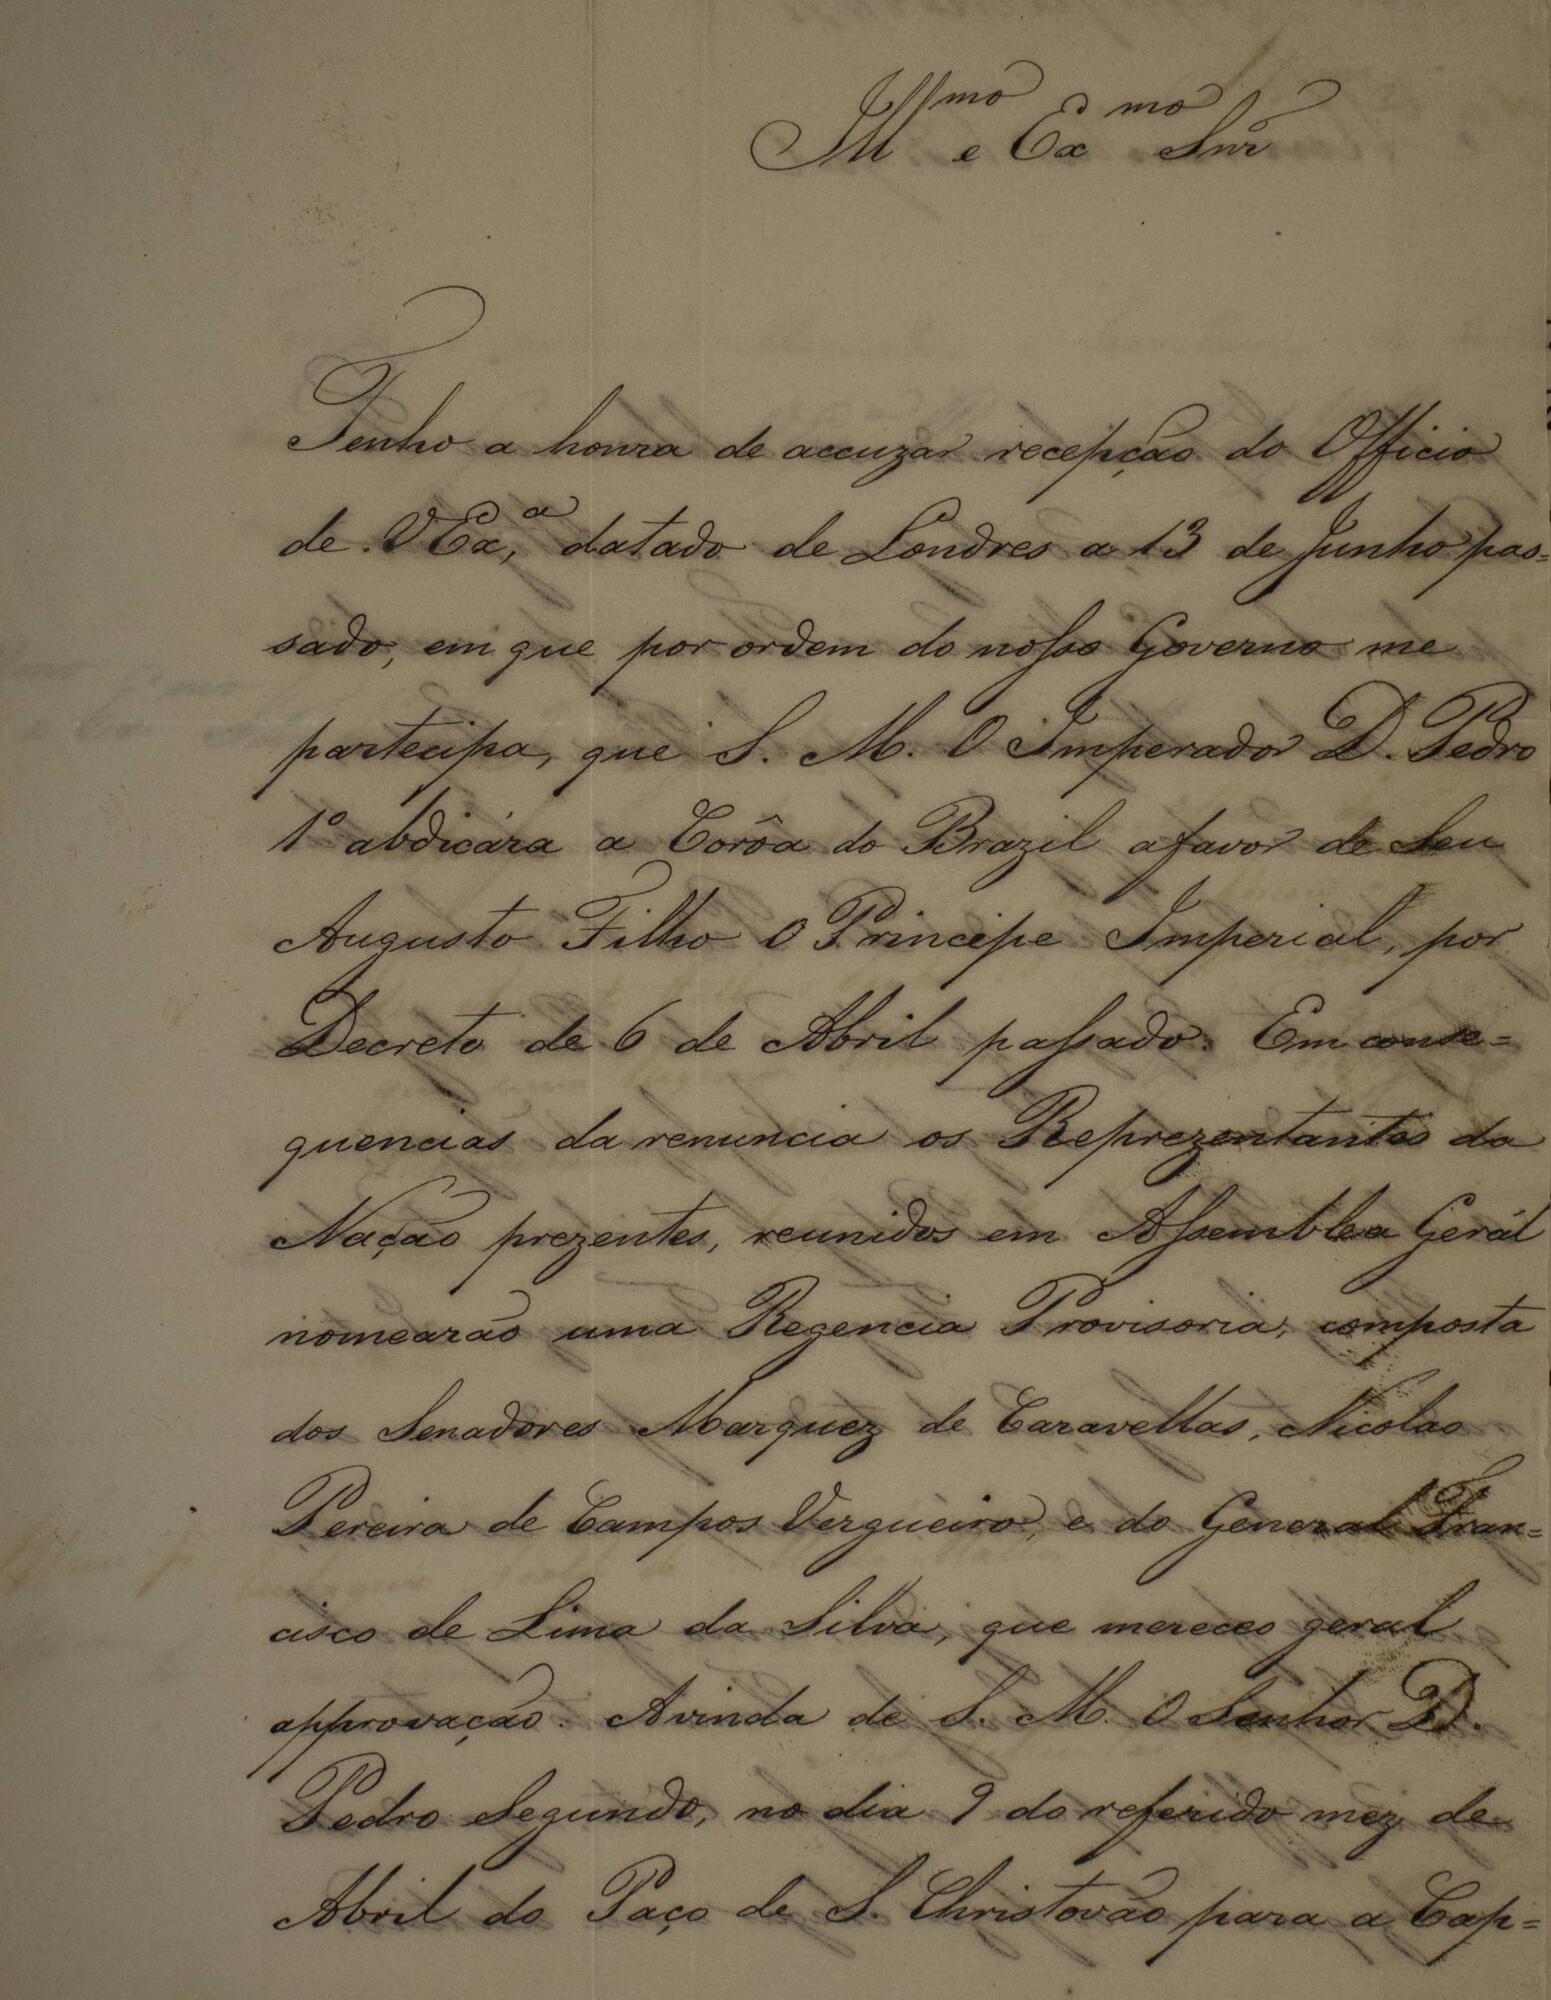 Illmo e Exmo Snr
Tenho a honra de accuzar recepção do Officio
de VExa, datado de Londres a 13 de Junho pas=
sado, em que por ordem do nosso Governo me
partecipa, que S. M. O Imperador D. Pedro
1º abdicára a Corôa do Brazil a favor de Seu
Augusto Filho O Principe Imperial, por
Decreto de 6 de Abril passado. Em conse=
quencias da renuncia os Reprezentantes da
Nação prezentes, reunidos em Assemblea Gerál
nomearão uma Regencia Provisoria, composta
dos Senadores Marquez de Caravellas, Nicolao
Pereira de Campos Vergueiro, e do General Fran=
cisco de Lima da Silva, que mereceo geral
approvação. A vinda de S. M. O Senhor D.
Pedro Segundo, no dia 9 do referido mez de
Abril do Paço de S. Christovão para a Cap=